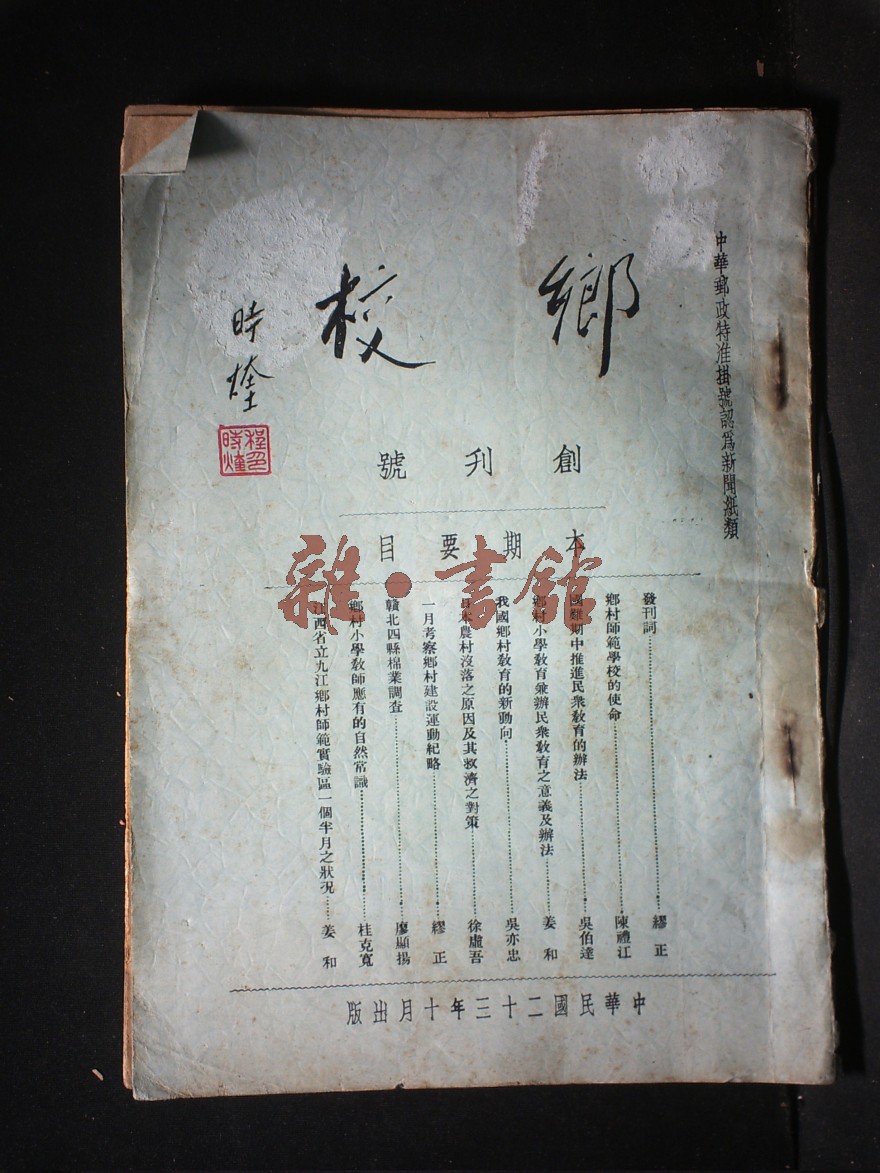 中華郵政特准掛號認爲新聞紙類
鄉校
時煃
程時煃印
創刊號
本期要目
發刊詞……繆正
鄉村師範學校的使命……陳禮江
國難期中推進民衆敎育的辦法……吳伯達
鄉村小學敎育兼辦民衆敎育之意義及辦法……姜和
我國鄉村敎育的新動向……吳亦忠
日本農村沒落之原因及其救濟之對策……徐虛吾
一月考察鄉村建設運動紀略……繆正
贛北四縣棉業調査……廖顯揚
鄉村小學敎師應有的自然常識……桂克寬
江西省立九江鄉村師範實驗區一個半月之狀況……姜和
中華民國二十三年十月出版
雜·書館